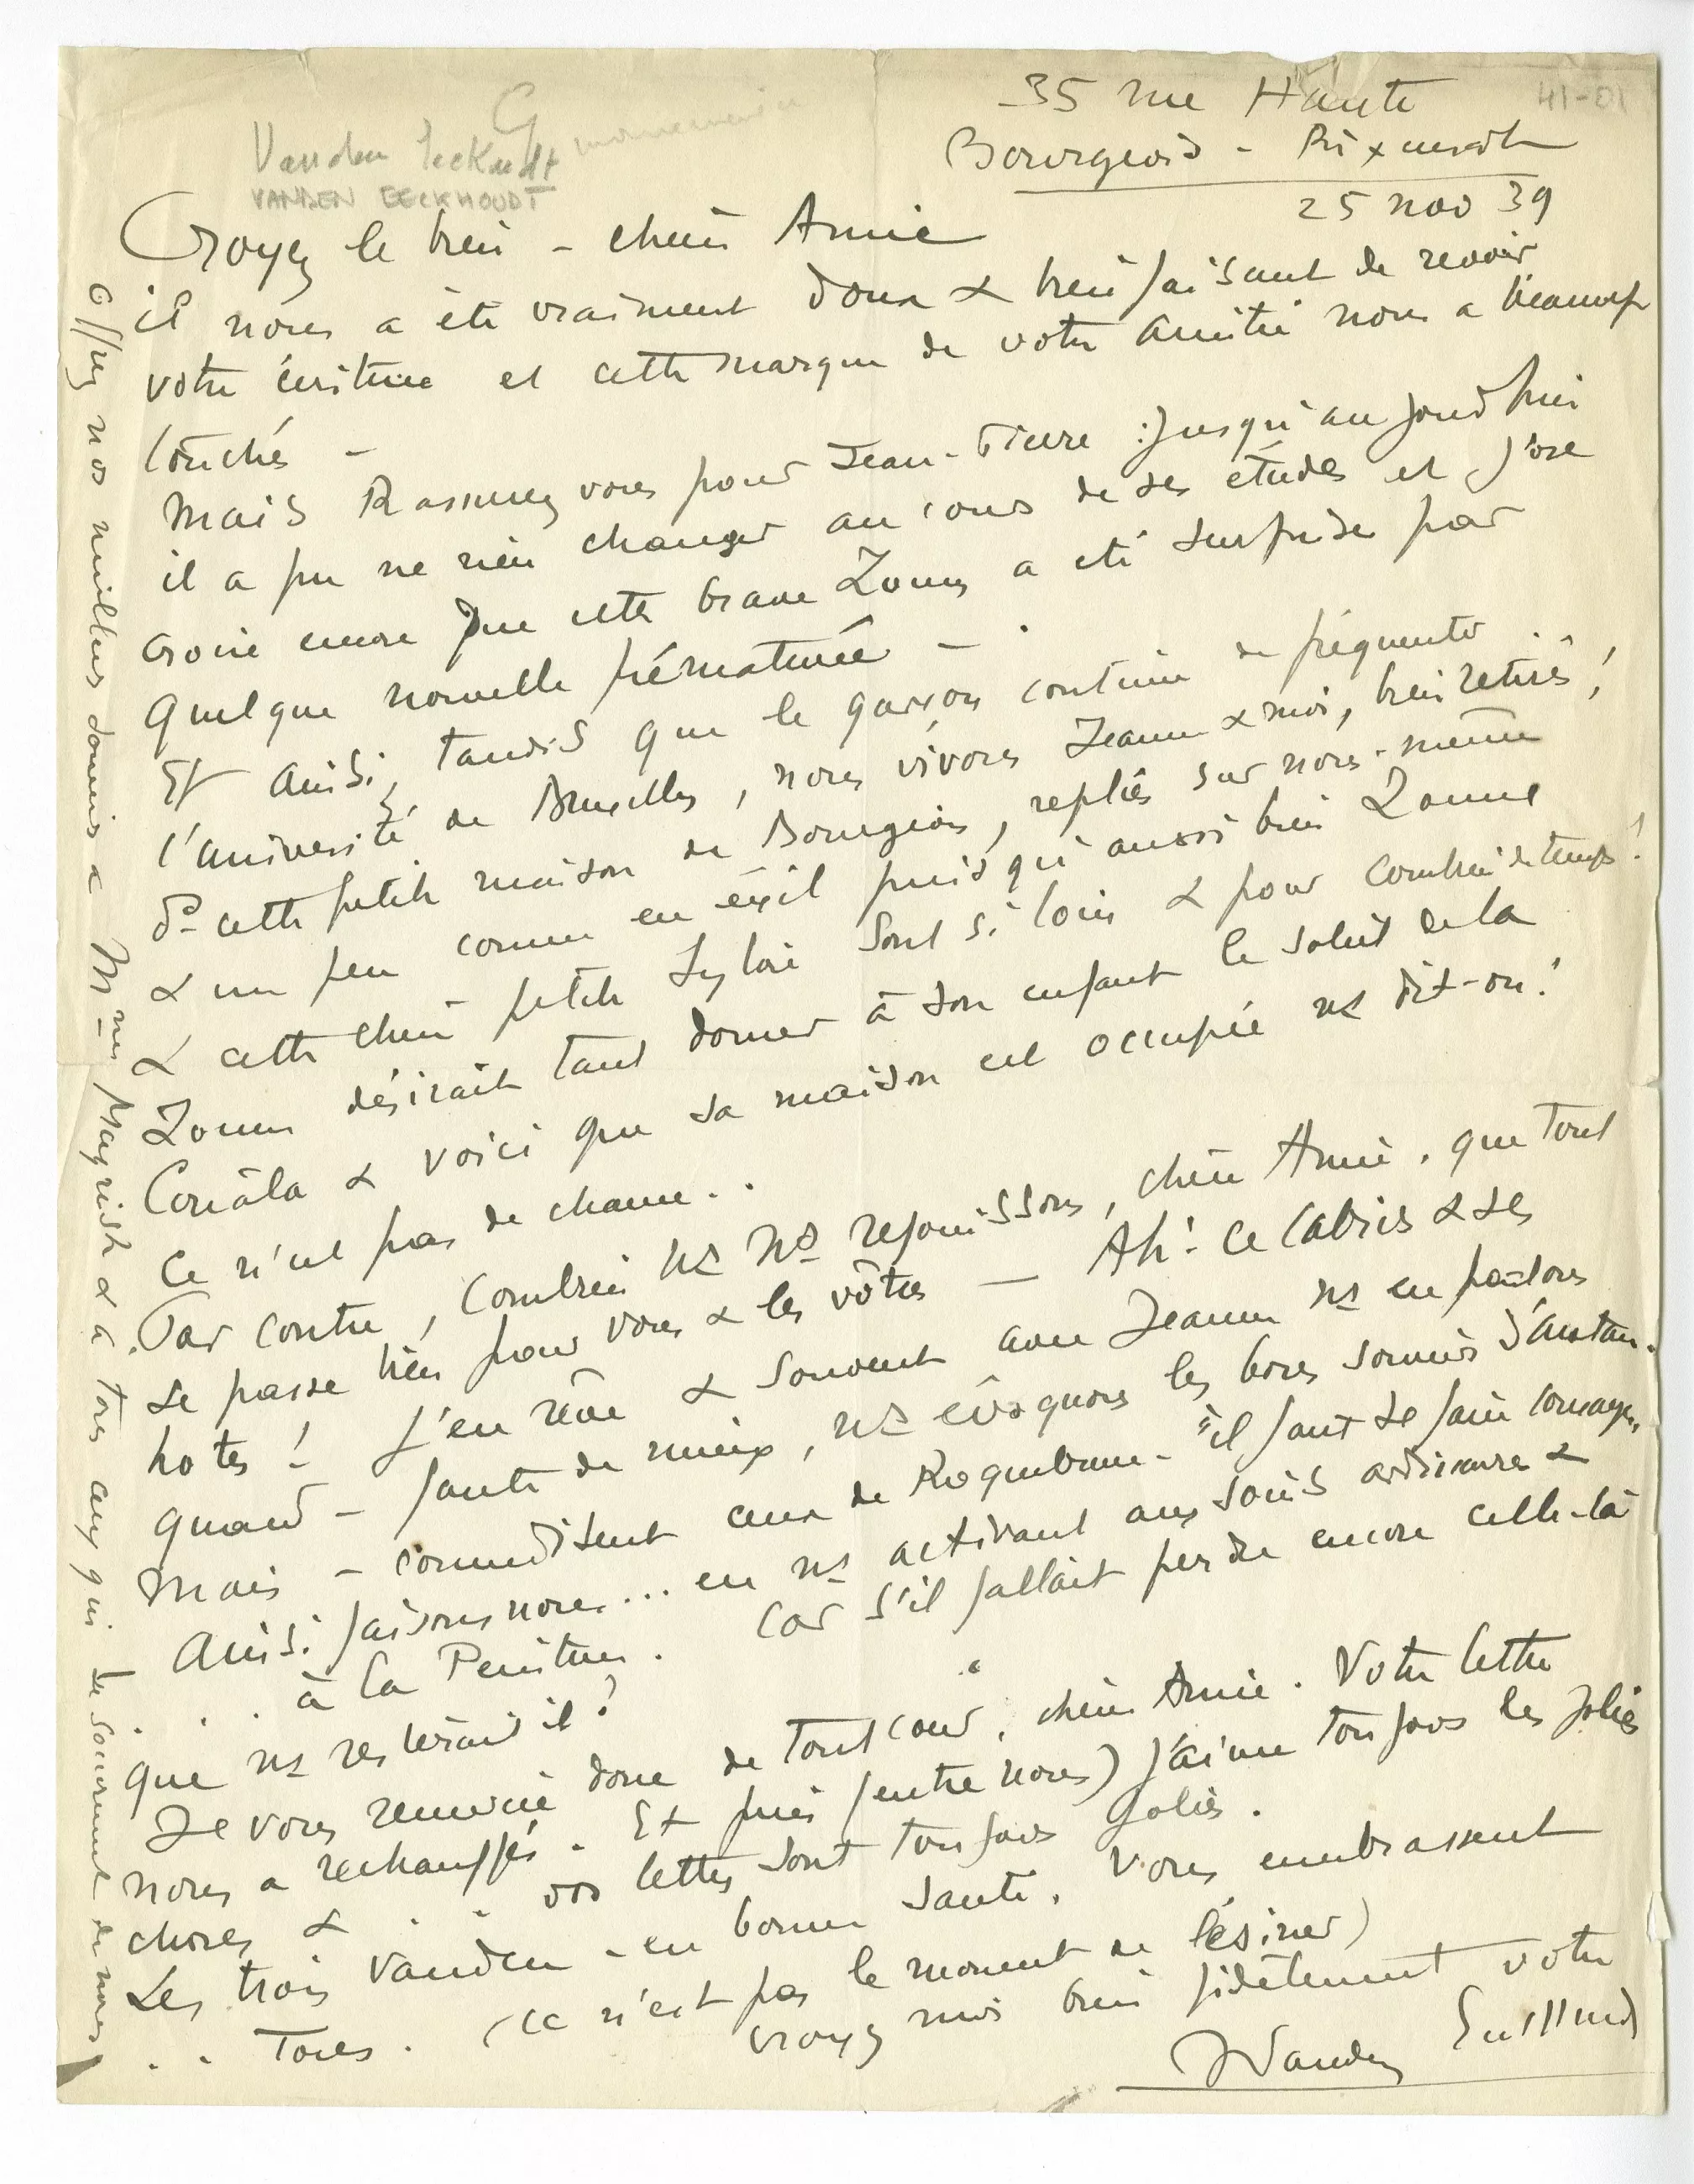 35 rue Haute
41-01
Bourgeois - Rixensart
25 nov 39
G
Vanden Eeckoudt
VANDEN EECKHOUDT
Croyez le bien - chère Amie
il nous a été vraiment doux & bienfaisant de revoir
votre écriture et cette marque de votre amitié nous a beaucoup
touchés -
Mais Rassurez vous pour Jean-Pierre : jusqu'au jourd'hui
il a pu ne rien changer au cours de ses études et j'ose
croire encore que cette brave Zoum a été surprise par
quelque nouvelle prématurée -
Et ainsi, tandis que le garçon continue de fréquenter
l'université de Bruxelles, nous vivons Jeanne & moi, bien retirés,
ds cette petite maison de Bourgeois, repliés sur nous-même
& un peu comme en éxil puisqu'aussi bien Zoum
& cette chère petite Sylvie sont si loin & pour combien de temps!
Zoum désirait tant donner à son enfant le soleil de la
Couâla & voici que sa maison est occupée ns dit-on!
Ce n'est pas de chance..
Par contre, combien ns ns rejouissons, chère Amie, que tout
se passe bien pour vous & les vôtres - Ah! ce Cabris & ses
hotes! J'en rêve & souvent avec Jeanne ns en parlons
quand - faute de mieux, ns évoquons les bons souvenirs d'autan.
Mais - comme disent ceux de Roquebrune - "il faut se faire courage"
Ainsi faisons nous... en ns activant aux soins ordinaires &
. . . à la Peinture. Car s'il fallait perdre encore celle-là
que ns resterait il?
Je vous remercie donc de tout cœur, chère Amie. Votre lettre
nous a rechauffés. Et puis (entre nous) j'aime toujours les jolies
choses & . . vos lettres sont toujours jolies.
Les trois Vanden - en bonne santé. Vous embrassent
. . Tous. (ce n'est pas le moment de lésiner)
croyez moi bien fidèlement votre
JVanden
Offrez nos meilleurs souvenirs à Mme Mayrisch & à tous ceux qui se souviennent de nous